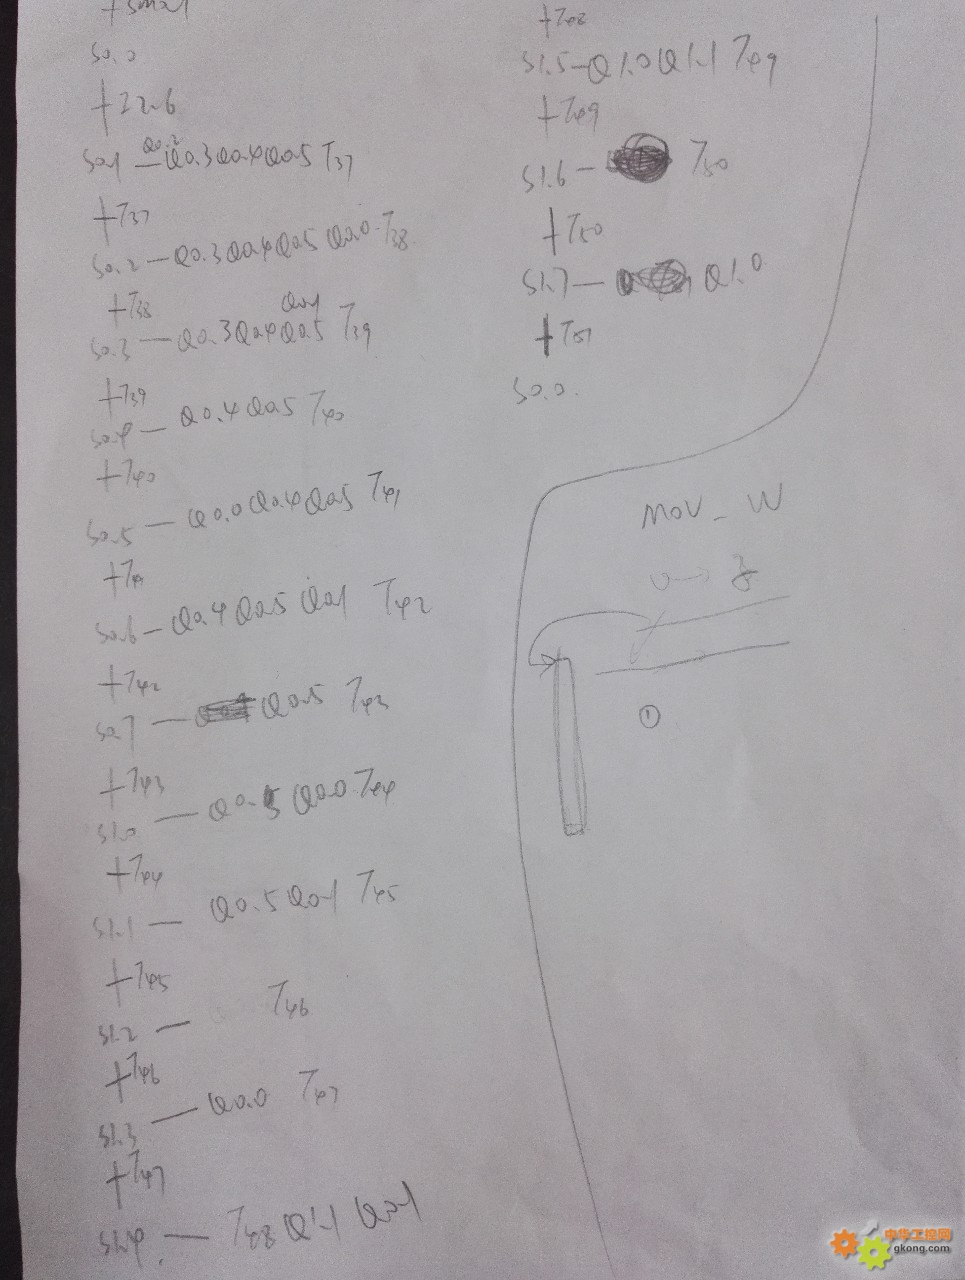 S0.0
+I2.6
Q0.2
S0.1 — Q0.3 Q0.4 Q0.5 T37
+T37
S0.2 — Q0.3 Q0.4 Q0.5 Q0.0 T38
+T38
Q0.1
S0.3 — Q0.3 Q0.4 Q0.5 T39
+T39
S0.4 — Q0.4 Q0.5 T40
+T40
S0.5 — Q0.0 Q0.4 Q0.5 T41
+T41
S0.6 — Q0.4 Q0.5 Q0.1 T42
+T42
S0.7 — Q0.5 T43
+T43
S1.0 — Q0.5 Q0.0 T44
+T44
S1.1 — Q0.5 Q0.1 T45
+T45
S1.2 — T46
+T46
S1.3 — Q0.0 T47
+T47
S1.4 — T48 Q1.1 Q0.1
+T48
S1.5 — Q1.0 Q1.1 T49
+T49
S1.6 — T50
+T50
S1.7 — Q1.0
+T51
S0.0
MOV_W
①
中华工控网
gkong.com